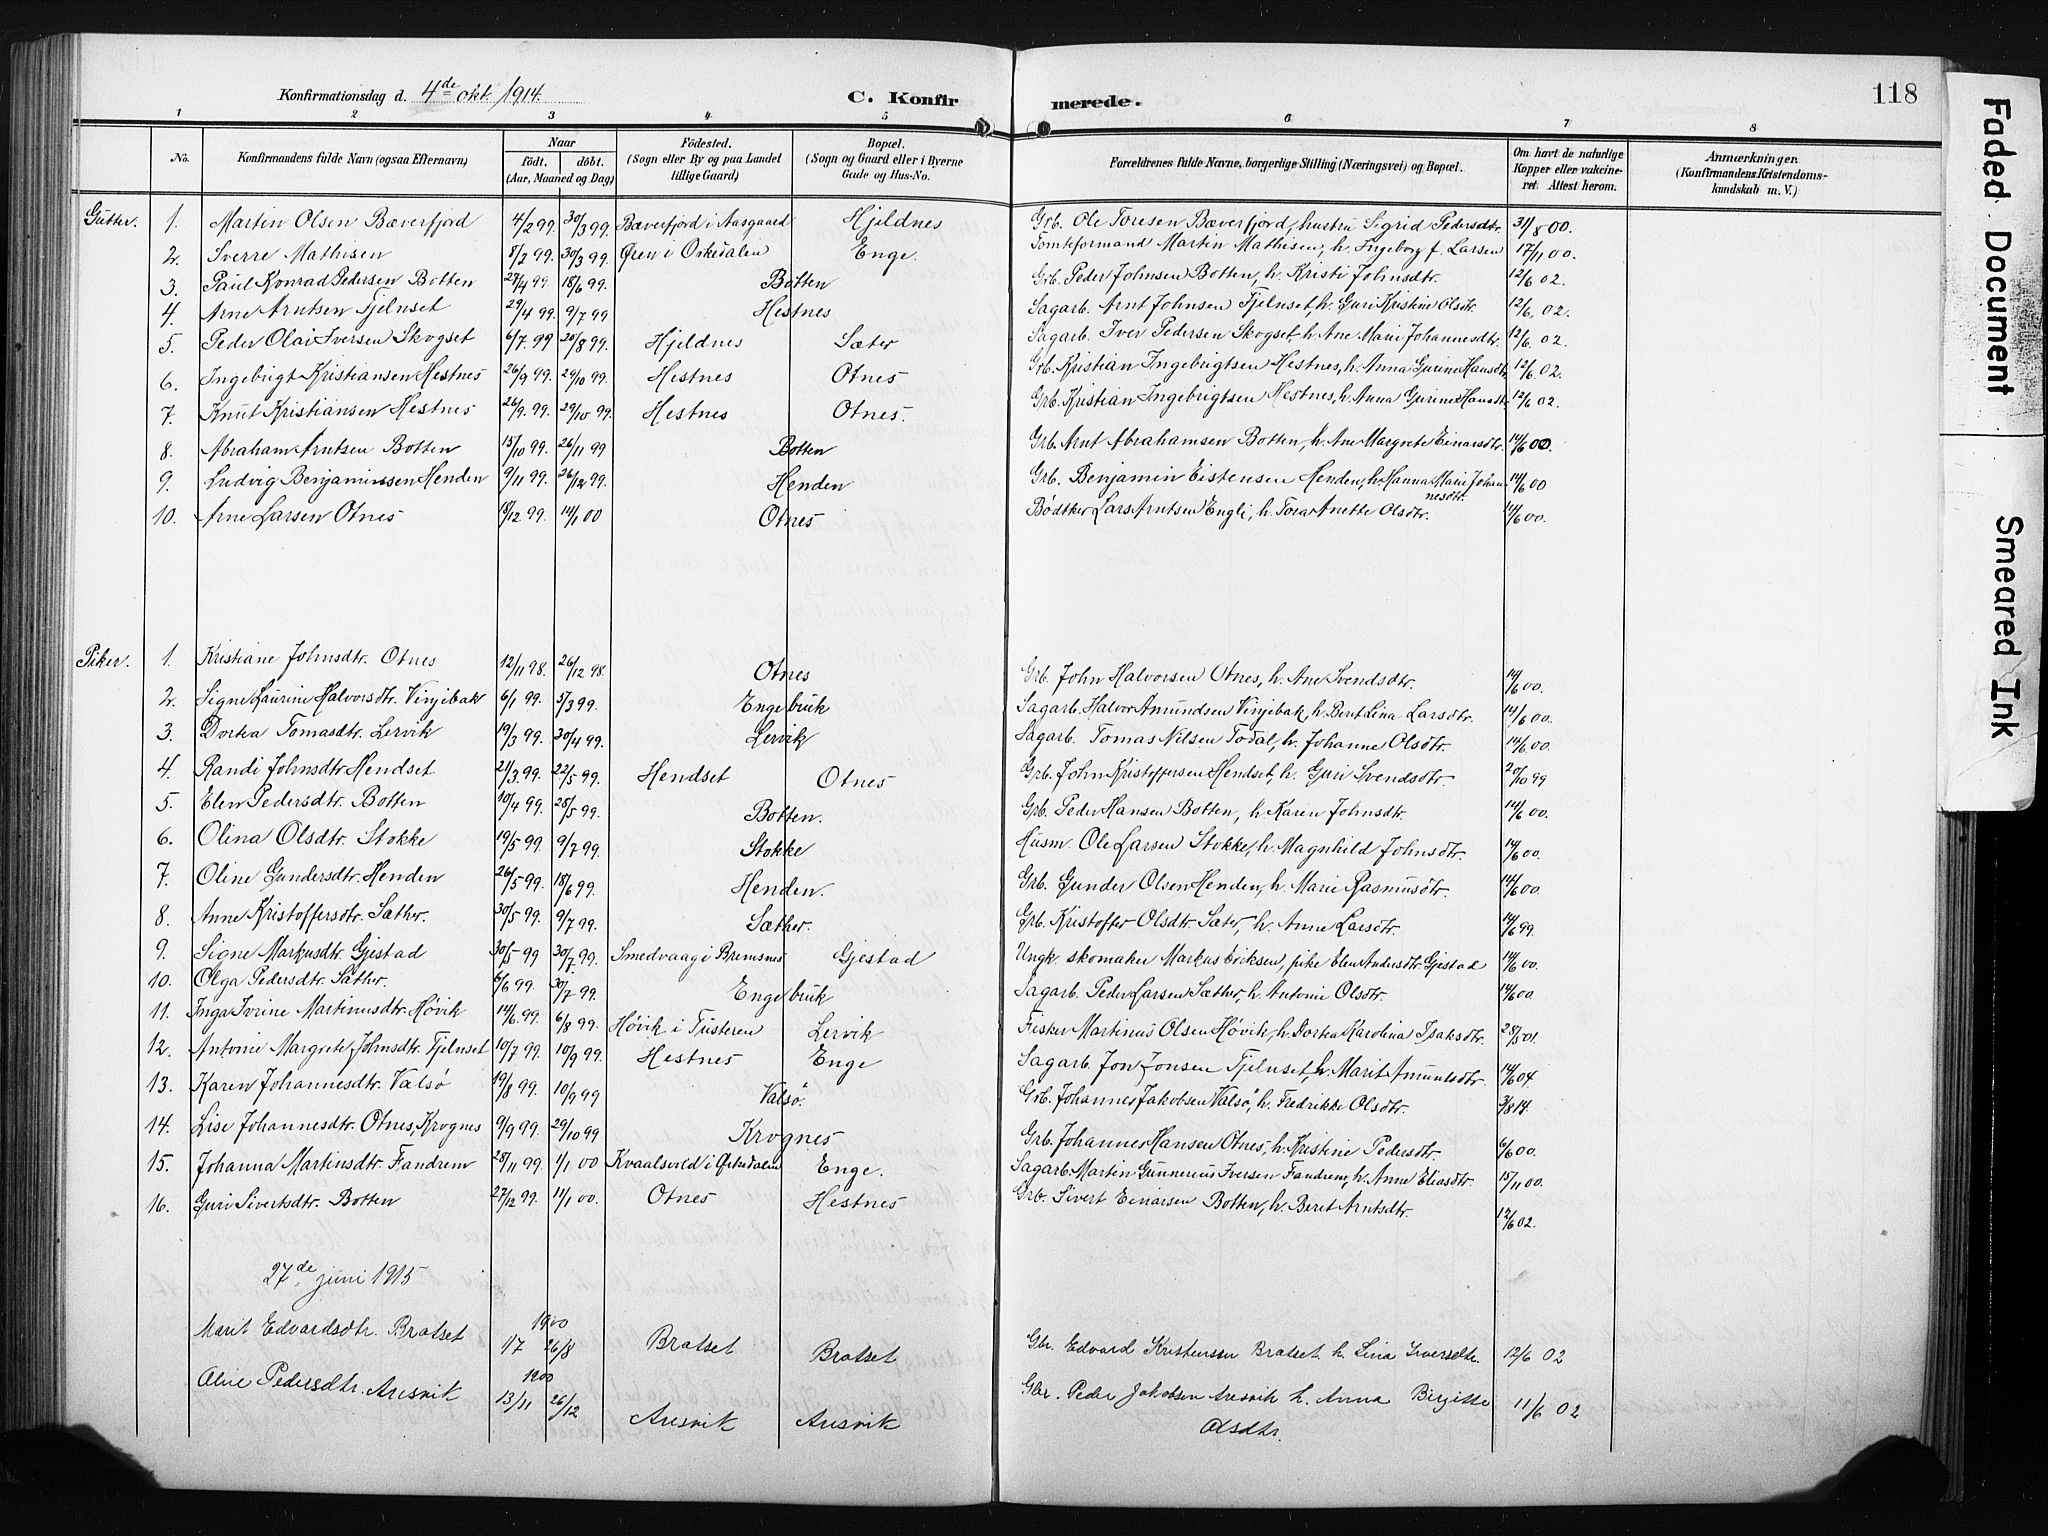 Konfirmationsdag d. 4de okt. 1914. C. Konfirmerede. 118
1 2 3 4 5 6 7 8
No. Konfirmandens fulde Navn (ogsaa Efternavn) Naar Født. døbt. (Aar, Maaned og Dag) Fødested. (Sogn eller By og paa Landet tillige Gaard) Bopæl. (Sogn og Gaard eller i Byerne Gade og Hus-No. Forældrenes fulde Navne, borgerlige Stilling (Næringsvei) og Bopæl. Om havt de naturlige Kopper eller vakcineret. Attest herom. Anmærkninger. (Konfirmandens Kristendomskundskab m. V.)
Gutter. 1. Martin Olsen Bæverfjord 4/2 99. 30/3 99. Bæverfjord i Aasgaard Hjeldnes Grb. Ole Toresen Bæverfjord, hustru Sigrid Pedersdtr. 31/8 00.
2. Sverre Mathisen 8/2 99. 30/3 99. Øren i Orkedalen Enge. Tomteformand Martin Mathisen, h. Ingeborg f. Larsen 17/11 00.
3. Paul Konrad Pedersen Botten 27/4 99. 18/6 99. Botten Grb. Peder Johnsen Botten, h. Kristi Johnsdtr. 12/6 02.
4. Arne Arntsen Tjelnset 29/4 99. 9/7 99 Hestnes Sagarb. Arnt Johnsen Tjelnset, h. Guri Kristine Olsdtr. 12/6 02.
5. Peder Olai Iversen Skogset 6/7 99 20/8 99. Hjeldnes Sæter Sagarb. Iver Pedersen Skogset, h. Ane Marie Johannesdtr. 12/6 02.
6. Ingebrigt Kristiansen Hestnes 26/9 99. 29/10 99. Hestnes Otnes Grb. Kristian Ingebrigtsen Hestnes, h. Anna Gurine Hansdtr. 12/6 02.
7. Knut Kristiansen Hestnes 26/9. 99. 29/10 99. Hestnes Otnes. Grb. Kristian Ingebrigtsen Hestnes, h. Anna Gurine Hansdtr. 12/6 02.
8. Abraham Arntsen Botten 15/10 99. 26/11 99 Botten Grb. Arnt Abrahamsen Botten, h. Ane Margrete Einarsdtr. 14/6 00
9. Ludvig Benjaminsen Henden 9/11 99. 26/12 99. Henden Grb. Benjamin Eistensen Henden, h. Hanna Marie Johan
nesdtr. 14/6 00
10. Arne Larsen Otnes 18/12 99. 14/1 00 Otnes Bødtker Lars Arntsen Engli, h. Tora Anette Olsdtr. 14/6 00.
Piker. 1. Kristiane Johnsdtr. Otnes 12/11 98. 26/12 98. Otnes Grb. John Halvorsen Otnes, h. Ane Svendsdtr. 14/6 00.
2. Signe Laurine Halvorsdtr. Vinjebak 6/1 99. 5/3 99. Engebruk Sagarb. Halvor Amundsen Vinjebak, h. Beret Lina Larsdtr. 14/6 00.
3. Dortea Tomasdtr. Lervik 19/3 99. 30/4 99. Lervik Sagarb. Tomas Nilsen Todal, h. Johanne Olsdtr. 14/6 00.
4. Randi Johnsdtr. Hendset 21/3 99. 22/5 99. Hendset Otnes Grb. John Kristoffersen Hendset, h. Guri Svendsdtr. 20/10 99
5. Elen Pedersdtr. Botten 10/4 99. 28/5 99. Botten. Grb. Peder Hansen Botten, h. Karen Johnsdtr. 14/6 00.
6. Olina Olsdtr. Stokke 19/5 99. 9/7 99. Stokke Husm. Ole Larsen Stokke, h. Magnhild Johnsdtr. 14/6 00.
7. Oline Gundersdtr. Henden 26/5 99. 18/6 99. Henden. Grb. Gunder Olsen Henden, h. Marie Rasmusdtr. 14/6 00.
8. Anne Kristoffersdtr. Sæther. 30/5 99. 9/7 99. Sæther. Grb. Kristoffer Olsdtr. Sæter, h. Anne Larsdtr. 14/6 99.
9. Signe Markusdtr. Gjestad 30/5 99 30/7 99. Smedvaag i Bremsnes Gjestad Ungk. skomaker Markus Eriksen, pike Elen Andersdtr. Gjestad 14/6 00.
10. Olga Pedersdtr. Sæther. 6/6 99. 30/7 99. Engebruk Sagarb. Peder Larsen Sæther, h. Antonie Olsdtr. 14/6 00.
11. Inga Ivrine Martinusdtr. Høvik 14/6 99. 6/8 99. Høvik i Tusteren Lervik Fisker Martinus Olsen Høvik, h. Dortea Karolina Isaksdtr. 28/5 01.
12. Antonie Margrete Johnsdtr. Tjelnset 10/7 99. 10/9 99. Hestnes Enge Sagarb. Jon Jonsen Tjelnset, h. Marit Amuntsdtr. 14/6 04.
13. Karen Johannesdtr. Valsø 19/8 99. 10/9 99 Valsø. Grb. Johannes Jakobsen Valsø, h. Fredrikke Olsdtr. 3/8 14.
14. Lise Johannesdtr. Otnes, Krognes 9/9 99. 29/10 99 Krognes Grb. Johannes Hansen Otnes, h. Kristine Pedersdtr. 6/6 00.
15. Johanna Martinsdtr. Fandrem 28/11 99. 1/1 00 Kvaalsvold i Orkedalen Enge. Sagarb. Martin Gunnerius Iversen Fandrem, h. Anne Eliasdtr. 15/11 00.
16. Guri Sivertsdtr. Botten 27/12 99. 11/1 00. Otnes Hestnes Grb. Sivert Einarsen Botten, h. Beret Arntsdtr. 12/6 02.
27de juni 1915
1900
Marit Edvardsdtr. Bratset 1/7 26/8 Bratset Bratset Gbr. Edvard Kristensen Bratset h. Lina Iversdtr. 12/6 02
1900
Aline Pedersdtr. Aresvik 13/11 26/12 Aresvik Aresvik Gbr. Peder Jakobsen Aresvik h. Anna Birgitte
Olsdtr. 11/6 02
Faded Document
Smeared Ink